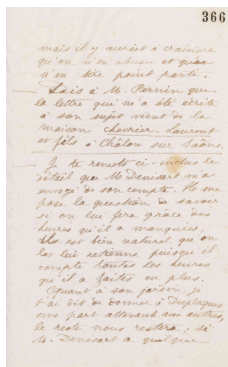 366
mais il y aurait à craindre
qu'on n'en abuse et qu'on
n'en tire point parti.
Dis à M. Pernin que
la lettre qui m'a été écrite
à son sujet vient de la
maison Chevrier Laurent
et fils à Châlon sur Saône.
Je te remets ci-inclus le
détail que M. Denisart m'a
envoyé de son compte. Il me
pose la question de savoir
si on lui fera grâce des
heures qu'il a manquées,
il est bien naturel qu'on
les lui retienne puisqu'il
compte toutes les heures
qu'il a faites en plus.
Quant à son jardin, je
t'ai dit de donner à
une part attenant aux autres,
le reste nous restera; si
M. Denisart a quelque